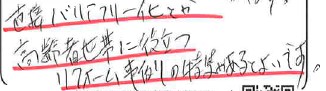 直際バリアフリー化とか
高齢者世帯に役立つ
リフォーム事例の特集があるとよいです。